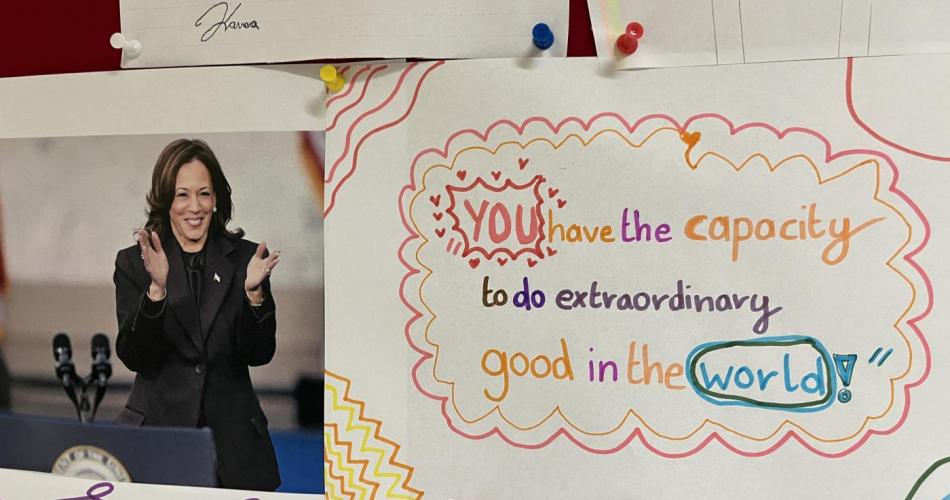 YOU have the capacity
to do extraordinary
good in the world!"